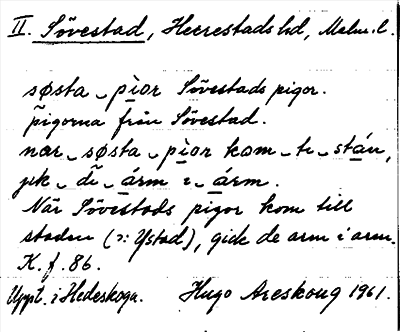 II. Sövestad, Herrestads hd, Malm. l.
søsta ‿ pìor Sövestads pigor.
pigorna från Sövestad.
nar ‿ søsta ‿ pìor kom ‿ te ‿ stán,
jik ‿ di ‿ árm ı ‿ árm.
När Sövestads pigor kom till
staden (ɔ: Ystad), gick de arm i arm.
K. f. 86.
Uppt. i Hedeskoga. Hugo Areskoug 1961.